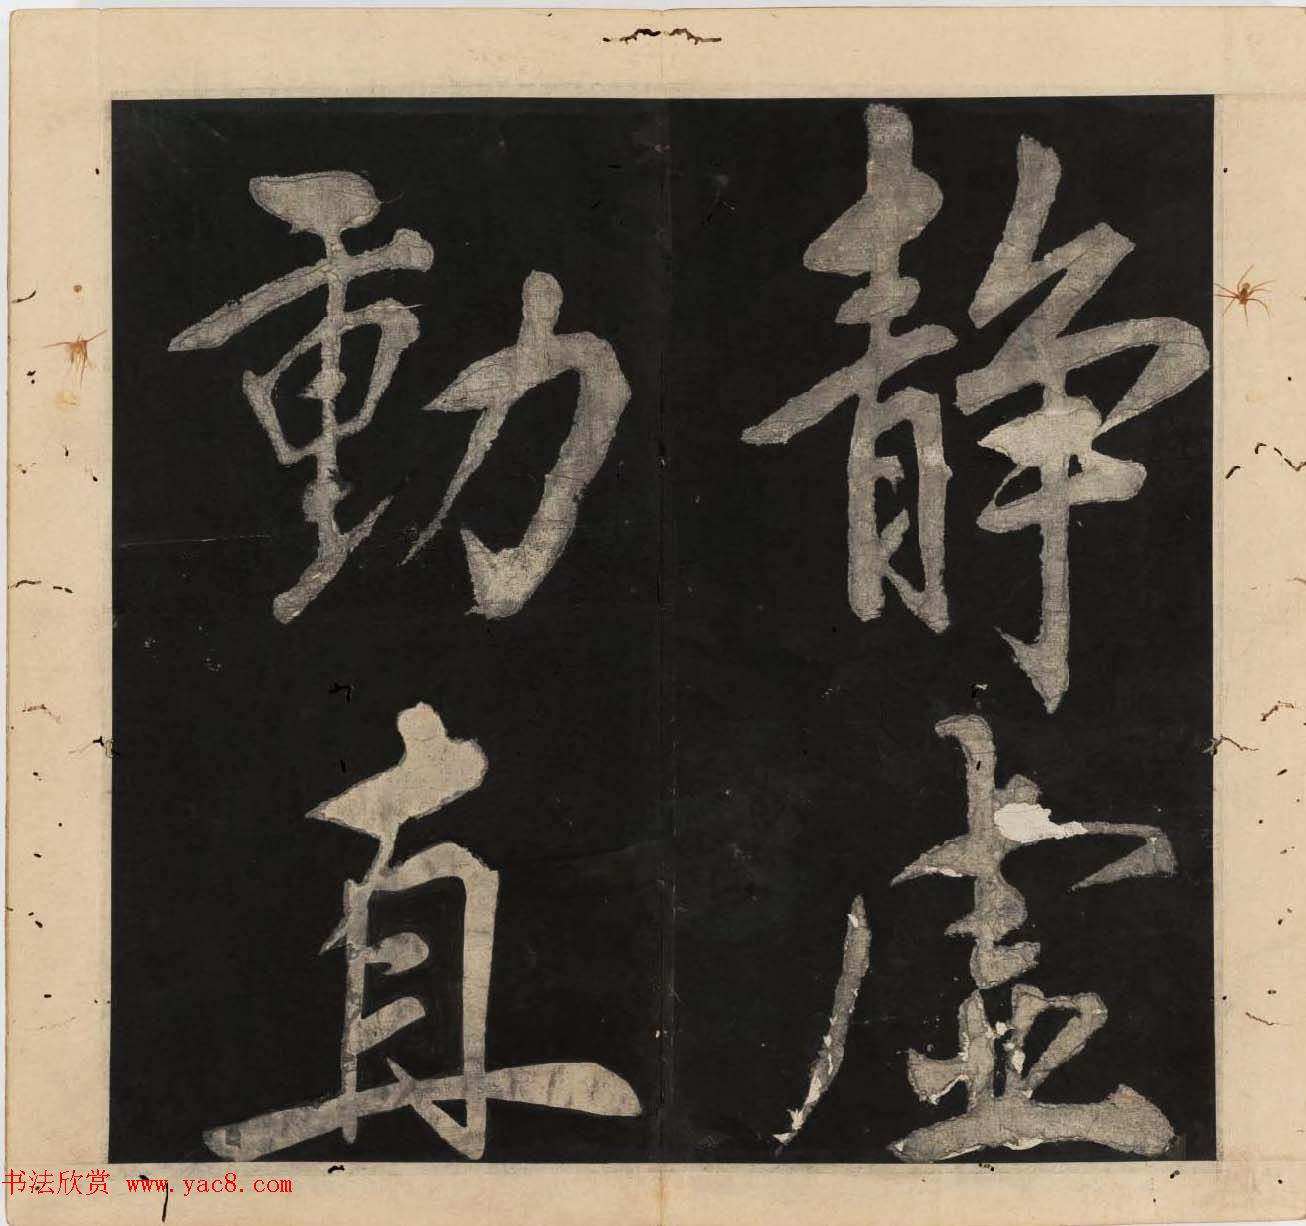 静虚
動直
书法欣赏 www.yac8.com